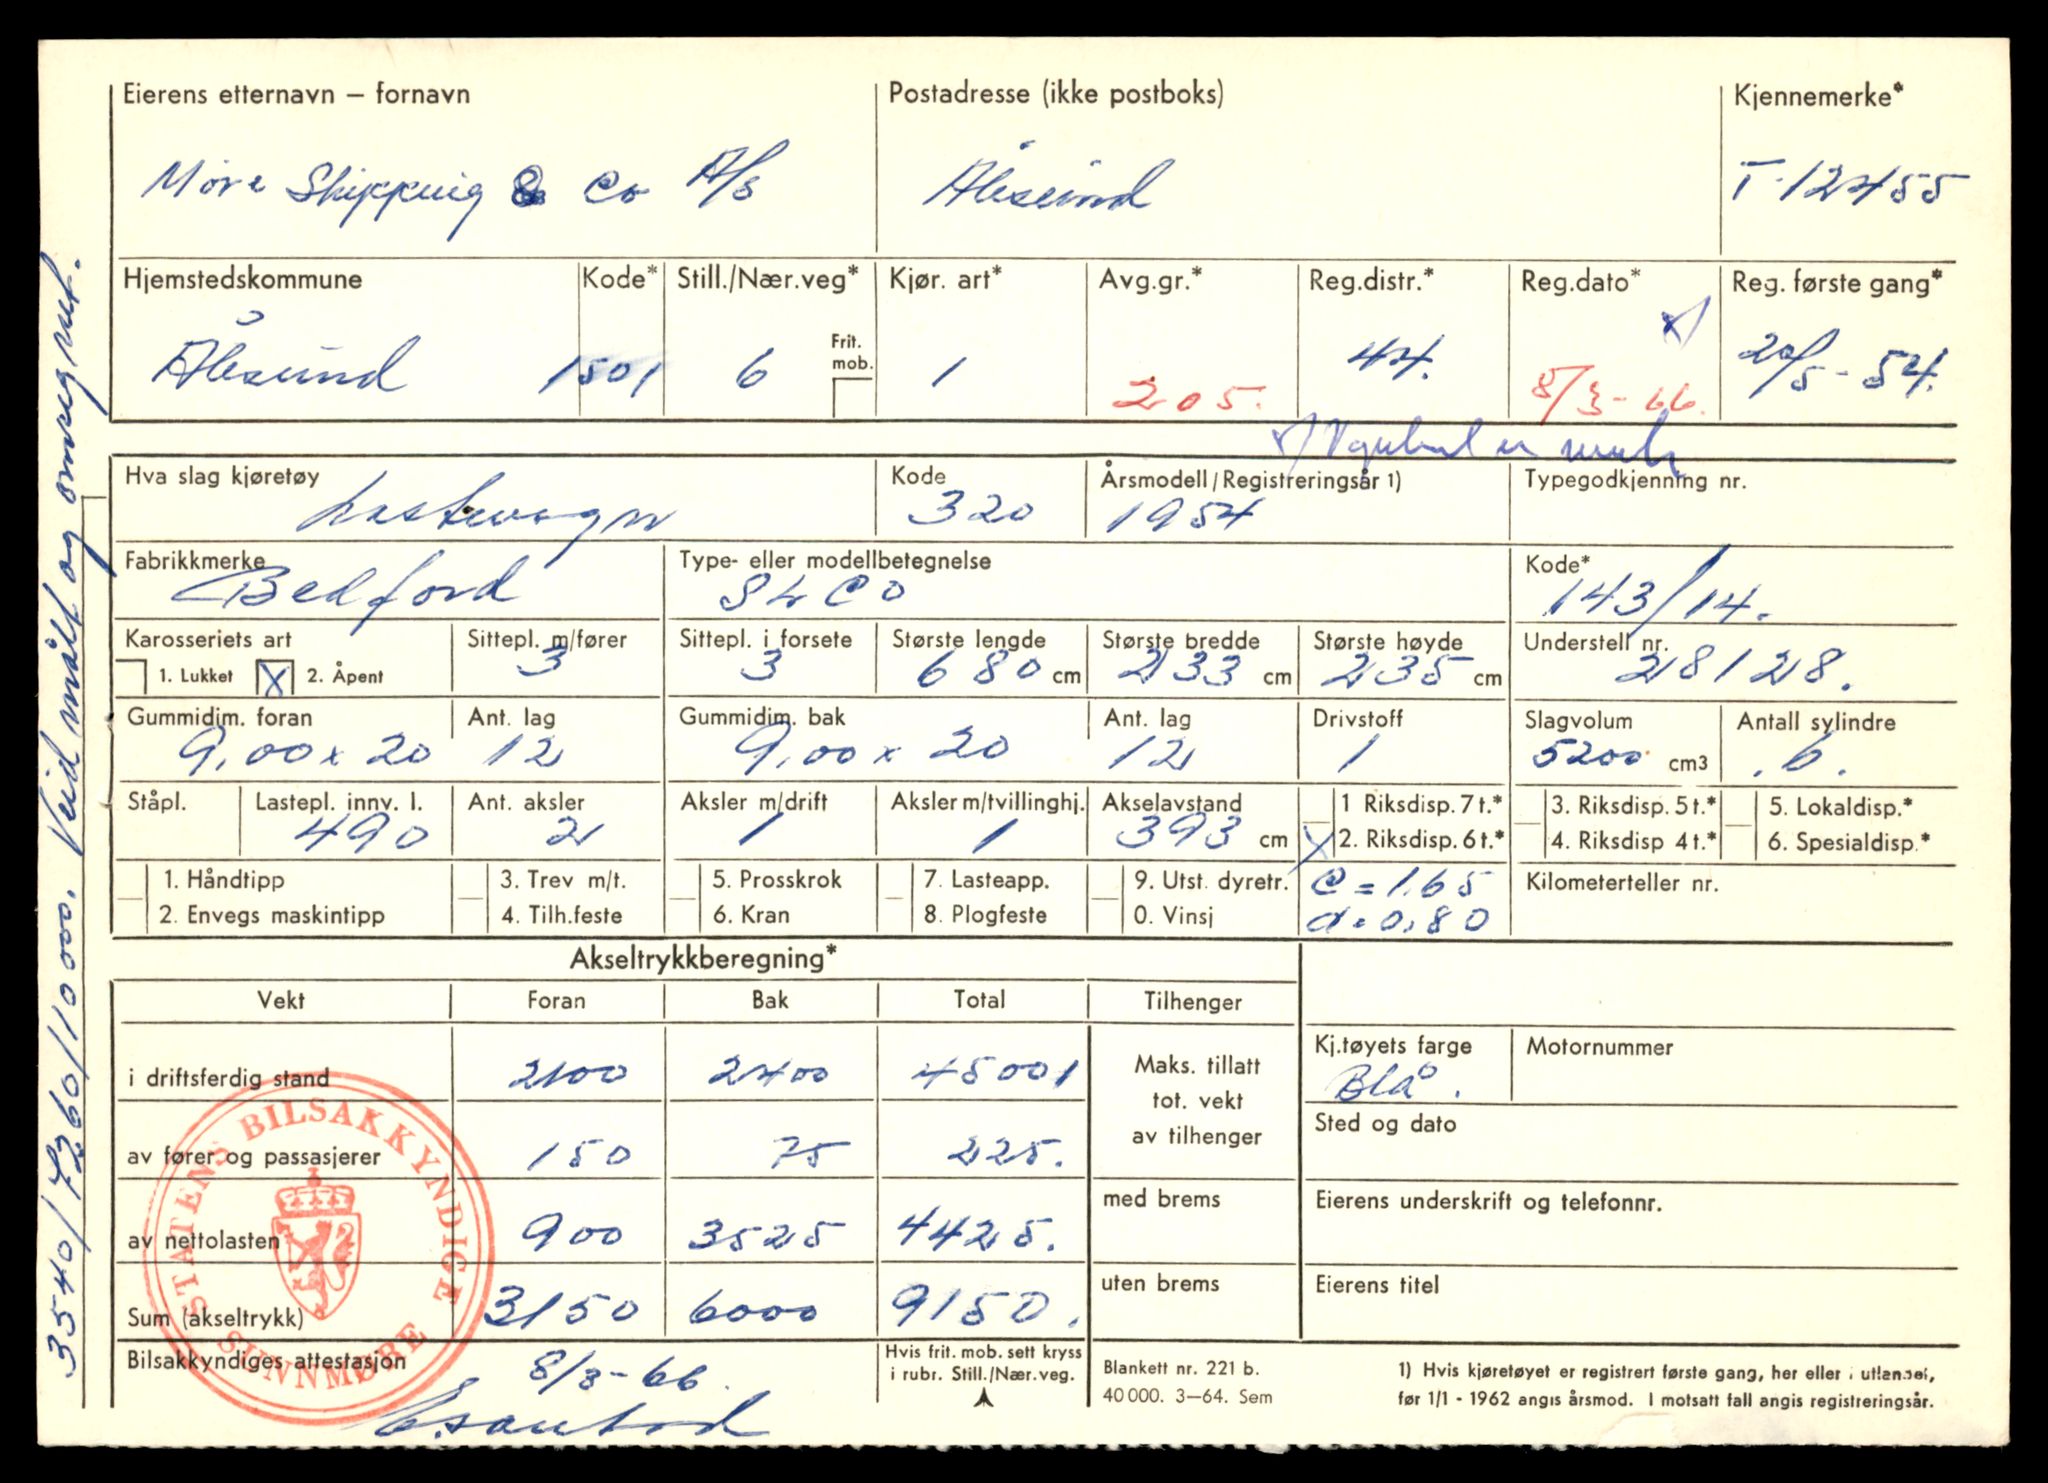 Eierens etternavn – fornavn Postadresse (ikke postboks) Kjennemerke*
Møre Shipping & Co A/S Ålesund T-12455
Hjemstedskommune Kode* Still./Nær.veg* Kjør. art* Avg.gr.* Reg.distr.* Reg.dato* Reg. første gang*
Ålesund 1501 6 Frit. mob. 1 205. 44. 8/3-66. x) 20/5-54.
x)
Hva slag kjøretøy Kode Årsmodell/Registreringsår 1) Typegodkjenning nr.
Lastevogn 320 1954
Fabrikkmerke Type- eller modellbetegnelse Kode*
Bedford SLCO 143/14.
Karosseriets art Sittepl. m/fører Sittepl. i forsete Største lengde Største bredde Største høyde Understell nr.
1. Lukket X 2. Åpent 3 3 680 cm 233 cm 235 cm 28128.
Gummidim. foran Ant. lag Gummidim. bak Ant. lag Drivstoff Slagvolum Antall sylindre
9,00 x 20 12 9,00 x 20 12 1 5200 cm3 6.
Ståpl. Lastepl. innv. l. Ant. aksler Aksler m/drift Aksler m/tvillinghj. Akselavstand 1 Riksdisp. 7 t.* 3. Riksdisp. 5 t.* 5. Lokaldisp.*
490 2 1 1 393 cm X 2. Riksdisp. 6 t.* 4. Riksdisp 4 t.* 6. Spesialdisp.*
1. Håndtipp 3. Trev m/t. 5. Prosskrok 7. Lasteapp. 9. Utst. dyretr. C = 1.65 Kilometerteller nr.
2. Envegs maskintipp 4. Tilh.feste 6. Kran 8. Plogfeste 0. Vinsj d = 0,80
Akseltrykkberegning*
Vekt Foran Bak Total Tilhenger
i driftsferdig stand 2100 2400 4500 Maks. tillatt tot. vekt av tilhenger Kj.tøyets farge Motornummer
Blå.
av fører og passasjerer 150 75 225. Sted og dato
av nettolasten 900 3525 4425. med brems Eierens underskrift og telefonnr.
Sum (akseltrykk) 3150 6000 9150. uten brems Eierens titel
Bilsakkyndiges attestasjon 8/3-66. Hvis frit. mob. sett kryss
i rubr. Still./Nær.veg.
Blankett nr. 221 b.
40 000. 3–64. Sem
1) Hvis kjøretøyet er registrert første gang, her eller i utlandet,
før 1/1 - 1962 angis årsmod. I motsatt fall angis registreringsår.
STATENS BILSAKKYNDIGE
SUNNMØRE
3540/7260/11000. Veid målt og omregnet.